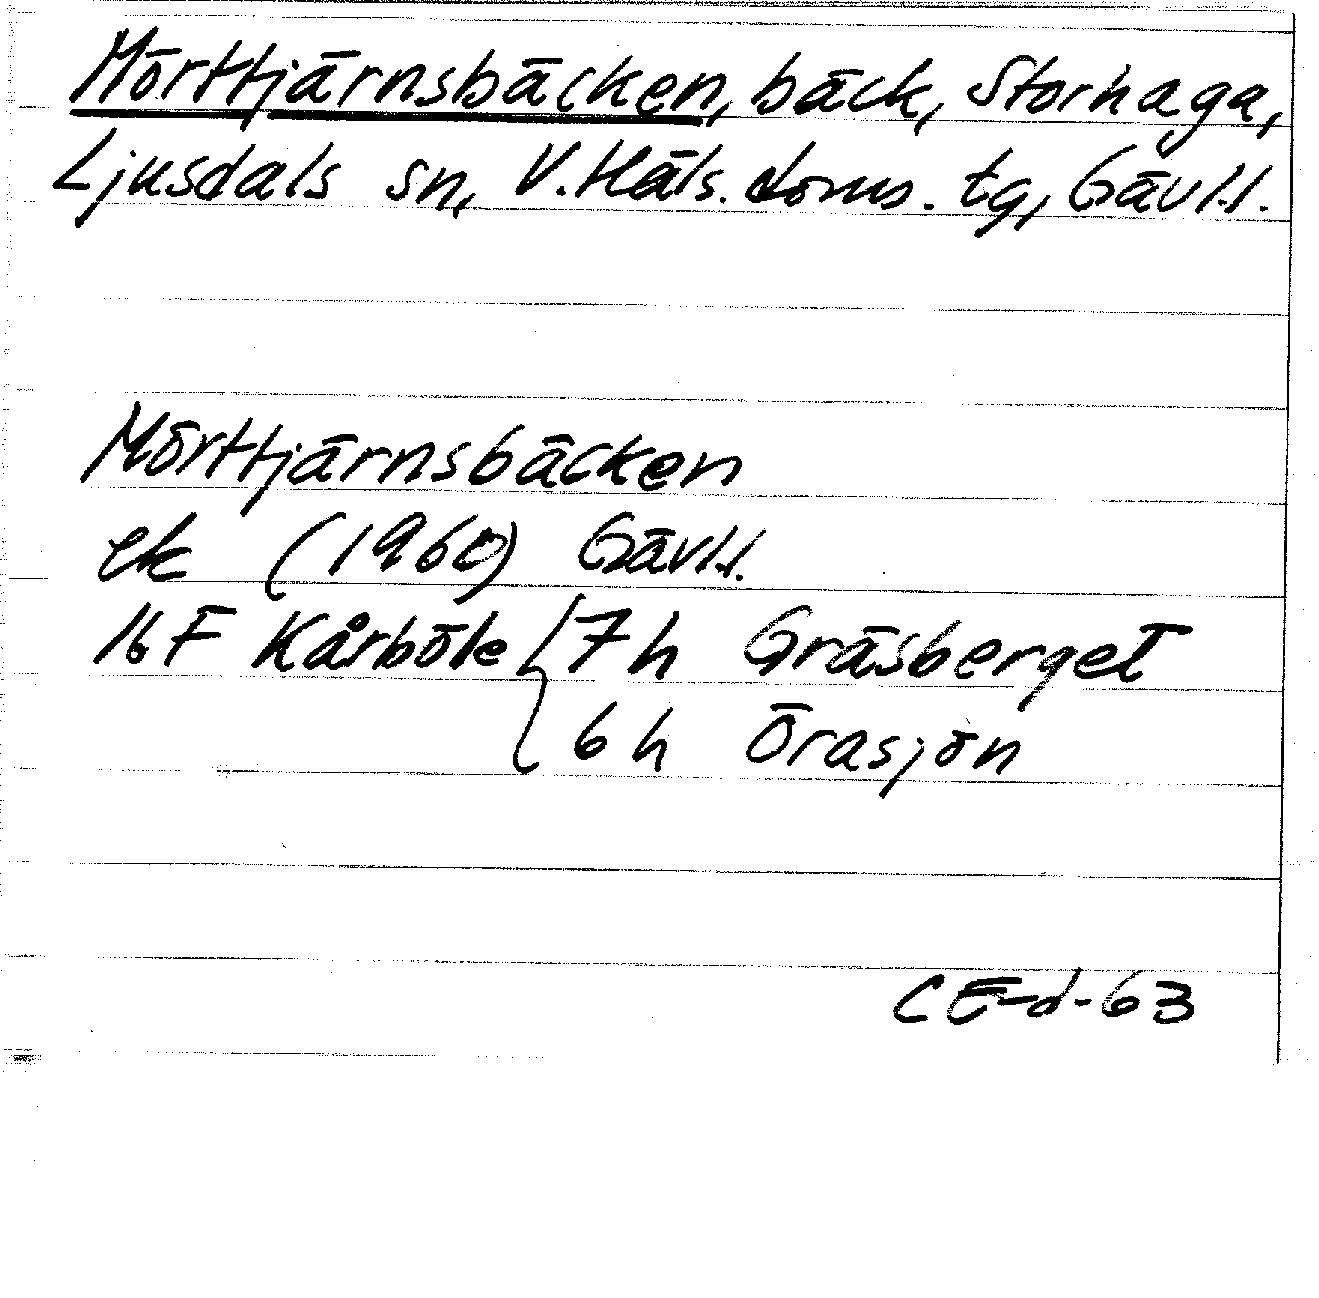 Mörttjärnsbäcken, bäck, Storhaga,
Ljusdals sn, V. Häls. doms. tg, Gävl.l.
Mörttjärnsbäcken
ek (1960) Gävl.l.
16F Kårböle { 7h Gräsberget
6h Örasjön
CE-d-63